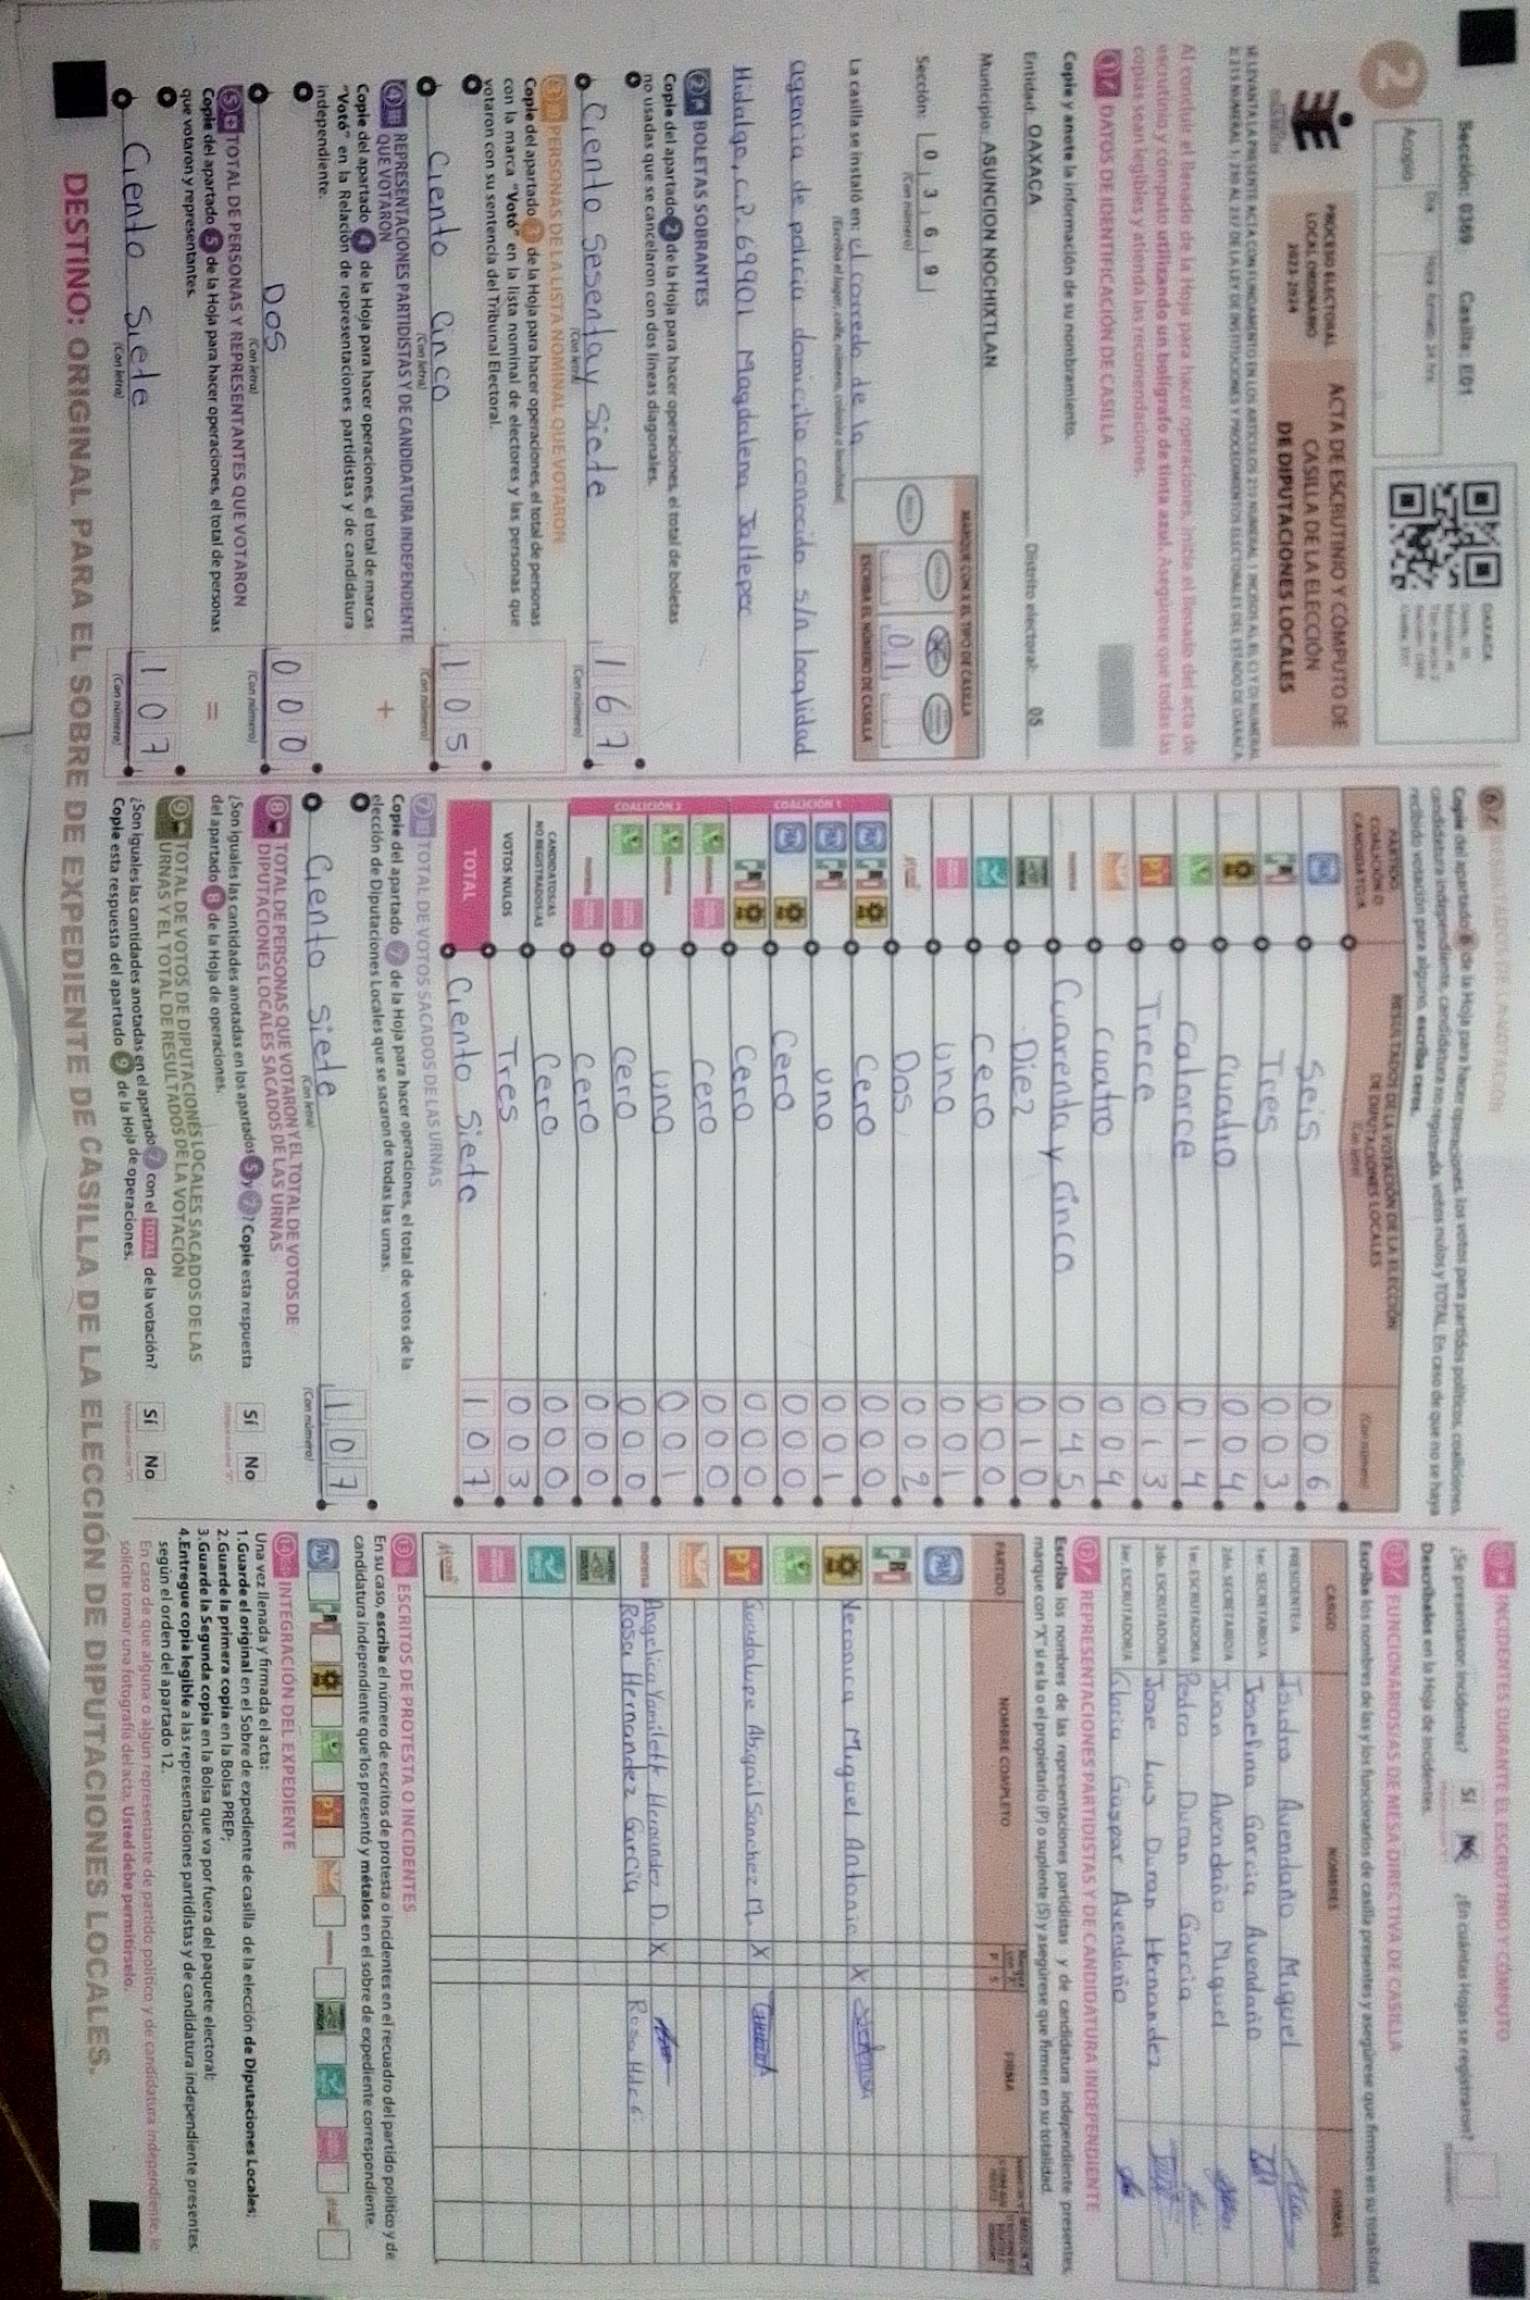 Sección: 0369 Casilla: E01
2
Acopio
PROCESO ELECTORAL
LOCAL ORDINARIO
2023-2024
ACTA DE ESCRUTINIO Y CÓMPUTO DE
CASILLA DE LA ELECCIÓN
DE DIPUTACIONES LOCALES
Al concluir el llenado de la Hoja para hacer operaciones, inicie el llenado del acta de
escrutinio y cómputo utilizando un bolígrafo de tinta azul. Asegúrese que todas las
copias sean legibles y atienda las recomendaciones.
1 DATOS DE IDENTIFICACIÓN DE CASILLA
Copie y anote la información de su nombramiento.
Entidad: OAXACA Distrito electoral: 05
Municipio: ASUNCION NOCHIXTLAN
Sección: 0 3 6 9
(Con número)
MARQUE CON X EL TIPO DE CASILLA
ESCRIBA EL NÚMERO DE CASILLA
01
La casilla se instaló en: el corredo de la
(Escriba el lugar, calle, número, colonia o localidad)
agencia de policia domicilio conocido s/n localidad
Hidalgo, C.P. 69901 Magdalena Jaltepec
2 BOLETAS SOBRANTES
Copie del apartado 2 de la Hoja para hacer operaciones, el total de boletas
no usadas que se cancelaron con dos líneas diagonales.
Ciento Sesentay Siete 167
(Con letra) (Con número)
3 PERSONAS DE LA LISTA NOMINAL QUE VOTARON
Copie del apartado 3 de la Hoja para hacer operaciones, el total de personas
con la marca "Votó" en la lista nominal de electores y las personas que
votaron con su sentencia del Tribunal Electoral.
Ciento Cinco 105
(Con letra) (Con número)
4 REPRESENTACIONES PARTIDISTAS Y DE CANDIDATURA INDEPENDIENTE
QUE VOTARON
Copie del apartado 4 de la Hoja para hacer operaciones, el total de marcas
"Votó" en la Relación de representaciones partidistas y de candidatura
independiente.
+
Dos 000
(Con letra) (Con número)
5 TOTAL DE PERSONAS Y REPRESENTANTES QUE VOTARON
Copie del apartado 5 de la Hoja para hacer operaciones, el total de personas
que votaron y representantes.
=
Ciento Siete 107
(Con letra) (Con número)
6 RESULTADOS DE LA VOTACIÓN
Copie del apartado 6 de la Hoja para hacer operaciones, los votos para partidos políticos, coaliciones,
candidatura independiente, candidatura no registrada, votos nulos y TOTAL. En caso de que no se haya
recibido votación para alguno, escriba ceros.
PARTIDO, COALICIÓN O CANDIDATO/A
RESULTADOS DE LA VOTACIÓN DE LA ELECCIÓN
DE DIPUTACIONES LOCALES
(Con letra) (Con número)
PAN Seis 006
PRI Tres 003
PRD Cuatro 004
Catorce 014
PT Trece 013
Cuatro 004
morena Cuarenta y Cinco 045
Diez 010
Cero 000
uno 001
Dos 002
COALICIÓN 1
Cero 000
uno 001
Cero 000
Cero 000
COALICIÓN 2
Cero 000
uno 001
Cero 000
Cero 000
CANDIDATOS/AS
NO REGISTRADOS/AS Cero 000
VOTOS NULOS Tres 003
TOTAL Ciento Siete 107
7 TOTAL DE VOTOS SACADOS DE LAS URNAS
Copie del apartado 7 de la Hoja para hacer operaciones, el total de votos de la
elección de Diputaciones Locales que se sacaron de todas las urnas.
Ciento Siete 107
(Con letra) (Con número)
8 TOTAL DE PERSONAS QUE VOTARON Y EL TOTAL DE VOTOS DE
DIPUTACIONES LOCALES SACADOS DE LAS URNAS
¿Son iguales las cantidades anotadas en los apartados 5 y 7? Copie esta respuesta
del apartado 8 de la Hoja de operaciones. Sí No
9 TOTAL DE VOTOS DE DIPUTACIONES LOCALES SACADOS DE LAS
URNAS Y EL TOTAL DE RESULTADOS DE LA VOTACIÓN
¿Son iguales las cantidades anotadas en el apartado 7 con el TOTAL de la votación?
Copie esta respuesta del apartado 9 de la Hoja de operaciones. Sí No
10 INCIDENTES DURANTE EL ESCRUTINIO Y CÓMPUTO
¿Se presentaron incidentes? Sí No ¿En cuántas Hojas se registraron?
Descríbalos en la Hoja de incidentes.
11 FUNCIONARIOS/AS DE MESA DIRECTIVA DE CASILLA
Escriba los nombres de las y los funcionarios de casilla presentes y asegúrese que firmen en su totalidad.
CARGO NOMBRES FIRMAS
PRESIDENTE/A Isidro Avendaño Miguel
1er. SECRETARIO/A Joselina Garcia Avendaño
2do. SECRETARIO/A Juan Avendaño Miguel
1er. ESCRUTADOR/A Pedro Duran Garcia
2do. ESCRUTADOR/A Jose Luis Duran Hernandez
3er. ESCRUTADOR/A Gloria Gaspar Avendaño
12 REPRESENTACIONES PARTIDISTAS Y DE CANDIDATURA INDEPENDIENTE
Escriba los nombres de las representaciones partidistas y de candidatura independiente presentes,
marque con "X" si es la o el propietario (P) o suplente (S) y asegúrese que firmen en su totalidad.
PARTIDO NOMBRE COMPLETO P S FIRMA
PAN
PRI
PRD Veronica Miguel Antonio X
PT Guadalupe Abigail Sanchez M. X
morena Angelica Yamileth Hernandez D. X
Rosa Hernandez Garcia Rosa Hdez G
13 ESCRITOS DE PROTESTA O INCIDENTES
En su caso, escriba el número de escritos de protesta o incidentes en el recuadro del partido político y de
candidatura independiente que los presentó y métalos en el sobre de expediente correspondiente.
14 INTEGRACIÓN DEL EXPEDIENTE
Una vez llenada y firmada el acta:
1. Guarde el original en el Sobre de expediente de casilla de la elección de Diputaciones Locales;
2. Guarde la primera copia en la Bolsa PREP;
3. Guarde la Segunda copia en la Bolsa que va por fuera del paquete electoral;
4. Entregue copia legible a las representaciones partidistas y de candidatura independiente presentes,
según el orden del apartado 12.
En caso de que alguna o algún representante de partido político y de candidatura independiente, le
solicite tomar una fotografía del acta, Usted debe permitírselo.
DESTINO: ORIGINAL PARA EL SOBRE DE EXPEDIENTE DE CASILLA DE LA ELECCIÓN DE DIPUTACIONES LOCALES.